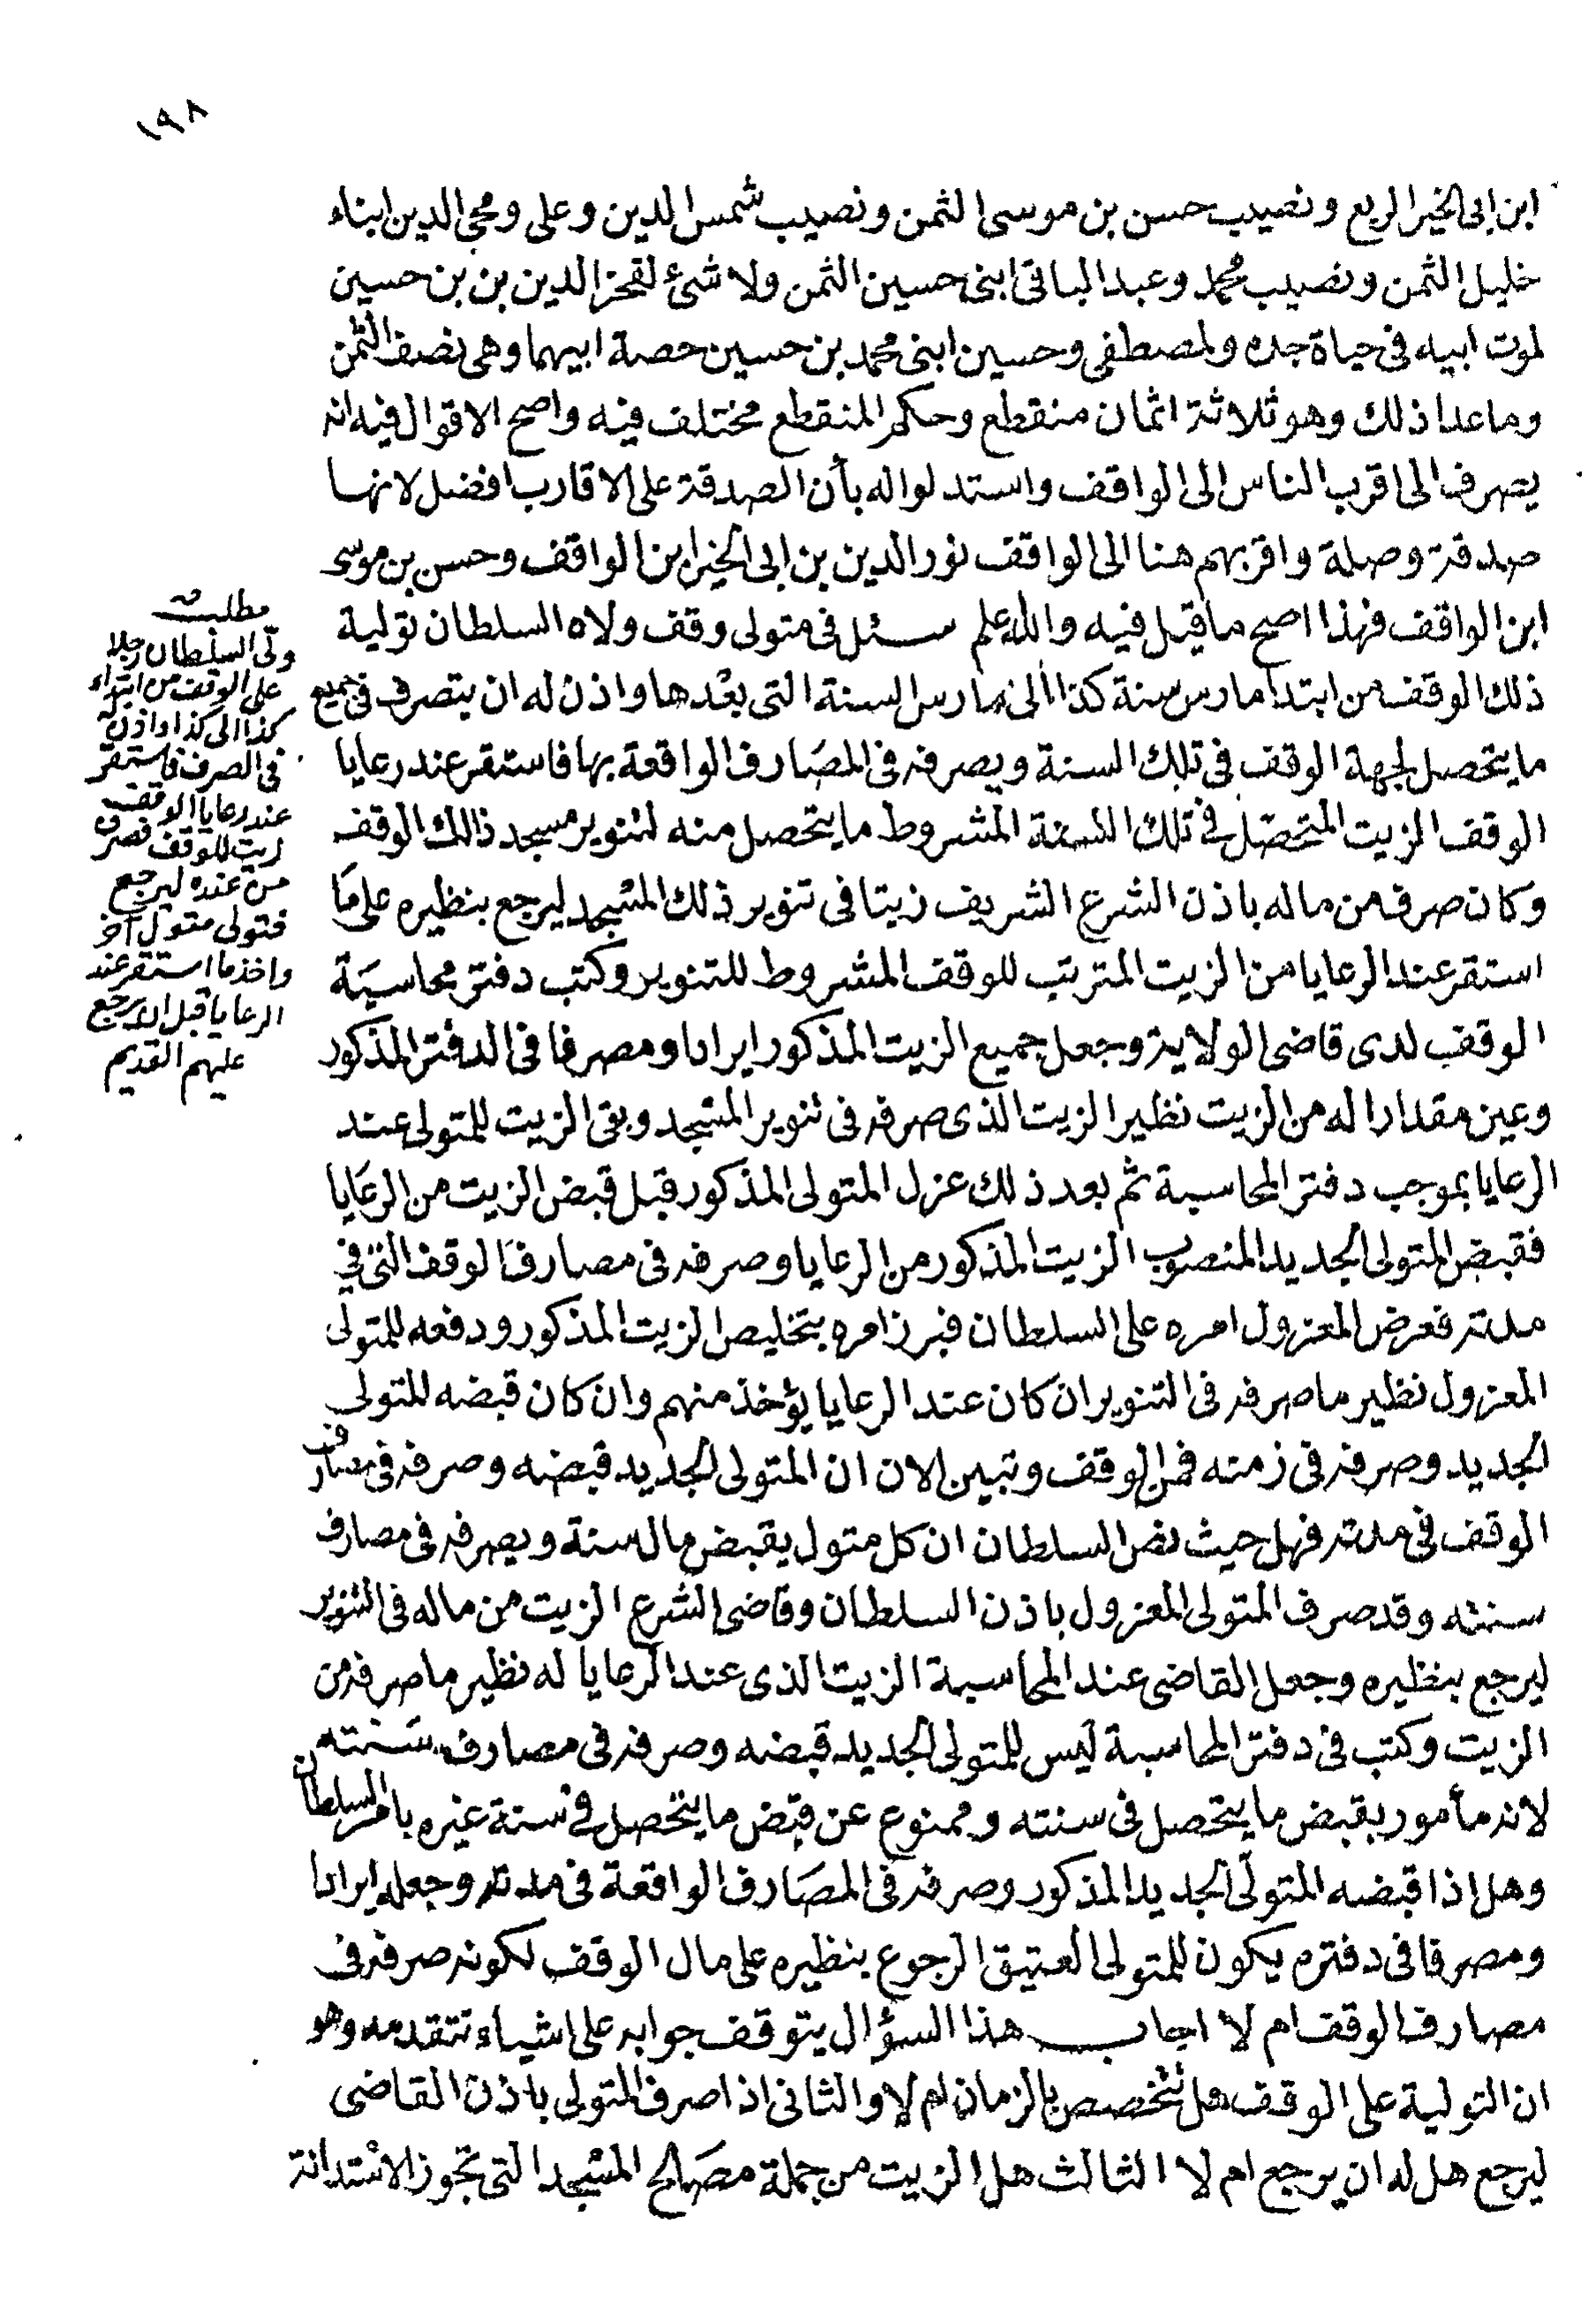 ١٩٨
ابن ابى الخير الربع ونصيب حسن بن موسى الثمن ونصيب شمس الدين وعلى ومحي الدين ابناء
خليل الثمن ونصيب محمد وعبد الباقى ابنى حسين الثمن ولا شئ لفخر الدين بن بن حسين
لموت ابيه فى حياة جده ولمصطفى وحسين ابنى محمد بن حسين حصة ابيهما وهى نصف الثمن
وما عدا ذلك وهو ثلاثة اثمان منقطع وحكم المنقطع مختلف فيه واصح الاقوال فيه انه
يصرف الى اقرب الناس الى الواقف واستدلوا له بأن الصدقة على الاقارب افضل لانها
صدقة وصلة واقربهم هنا الى الواقف نور الدين بن ابى الخير ابن الواقف وحسن بن موسى
ابن الواقف فهذا اصح ما قيل فيه والله اعلم سئل فى متولى وقف ولاه السلطان تولية
ذلك الوقف من ابتدأ مارس سنة كذا الى مارس السنة التى بعدها واذن له ان يتصرف فى جميع
ما يتحصل لجهة الوقف فى تلك السنة ويصرفه فى المصارف الواقعة بها فاستقر عند رعايا
الوقف الزيت المتحصل فى تلك السنة المشروط ما يتحصل منه لتنوير مسجد ذالك الوقف
وكان صرف من ماله باذن الشرع الشريف زيتا فى تنوير ذلك المسجد ليرجع بنظيره على ما
استقر عند الرعايا من الزيت المترتب للوقف المشروط للتنوير وكتب دفتر محاسبة
الوقف لدى قاضى الولاية وجعل جميع الزيت المذكور ايرادا ومصرفا فى الدفتر المذكور
وعين مقدارا له من الزيت نظير الزيت الذى صرفه فى تنوير المسجد وبقى الزيت للمتولى عند
الرعايا بموجب دفتر المحاسبة ثم بعد ذلك عزل المتولى المذكور قبل قبض الزيت من الرعايا
فقبض المتولى الجديد المنصوب الزيت المذكور من الرعايا وصرفه فى مصارف الوقف التى فى
مدته فعرض المعزول امره على السلطان فبرز امره بتخليص الزيت المذكور ودفعه للمتولى
المعزول نظير ما صرفه فى التنوير ان كان عند الرعايا يؤخذ منهم وان كان قبضه للمتولى
الجديد وصرفه فى زمنه فمن الوقف وتبين الان ان المتولى الجديد قبضه وصرفه فى مصارف
الوقف فى مدته فهل حيث نص السلطان ان كل متول يقبض مال سنة ويصرفه فى مصارف
سنته وقد صرف المتولى المعزول باذن السلطان وقاضى الشرع الزيت من ماله فى التنوير
ليرجع بنظيره وجعل القاضى عند المحاسبة الزيت الذى عند الرعايا له نظير ما صرفه من
الزيت وكتب فى دفتر المحاسبة ليس للمتولى الجديد قبضه وصرفه فى مصارف سنته
لانه مأمور بقبض ما يتحصل فى سنته وممنوع عن قبض ما يتحصل فى سنة غيره بامر السلطان
وهل اذا قبضه المتولى الجديد المذكور وصرفه فى المصارف الواقعة فى مدته وجعله ايرادا
ومصرفا فى دفتره يكون للمتولى العتيق الرجوع بنظيره على مال الوقف لكونه صرفه فى
مصارف الوقف ام لا اجاب هذا السؤال يتوقف جوابه على اشياء تتقدمه وهو
ان التولية على الوقف هل تتخصص بالزمان ام لا والثانى اذا صرف المتولى باذن القاضى
ليرجع هل له ان يرجع ام لا الثالث هل الزيت من جملة مصالح المسجد التى تجوز الاستدانة
مطلب
ولى السلطان رجلا
على الوقف من ابتداء
كذا الى كذا واذن له
فى الصرف فاستقر
عند رعايا الوقف
زيت للوقف فصرف
من عنده ليرجع
فتولى متول آخر
واخذ ما استقر عند
الرعايا قبل ان يرجع
عليهم القديم